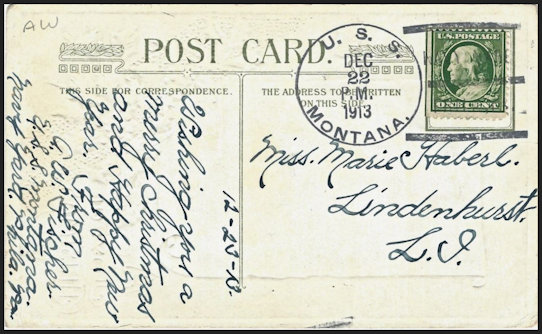 AW
POST CARD.
THIS SIDE FOR CORRESPONDENCE.
THE ADDRESS TO BE WRITTEN
ON THIS SIDE.
U. S. S.
DEC
22
P.M.
1913
MONTANA.
U.S. POSTAGE
ONE CENT
Miss. Marie Haberl.
Lindenhurst.
L.I.
12-23-13.
Wishing you a
merry Christmas
and Happy New
Year. From
Fischer.
U.S.S. Montana.
Navy Yard. Phila. Pa.